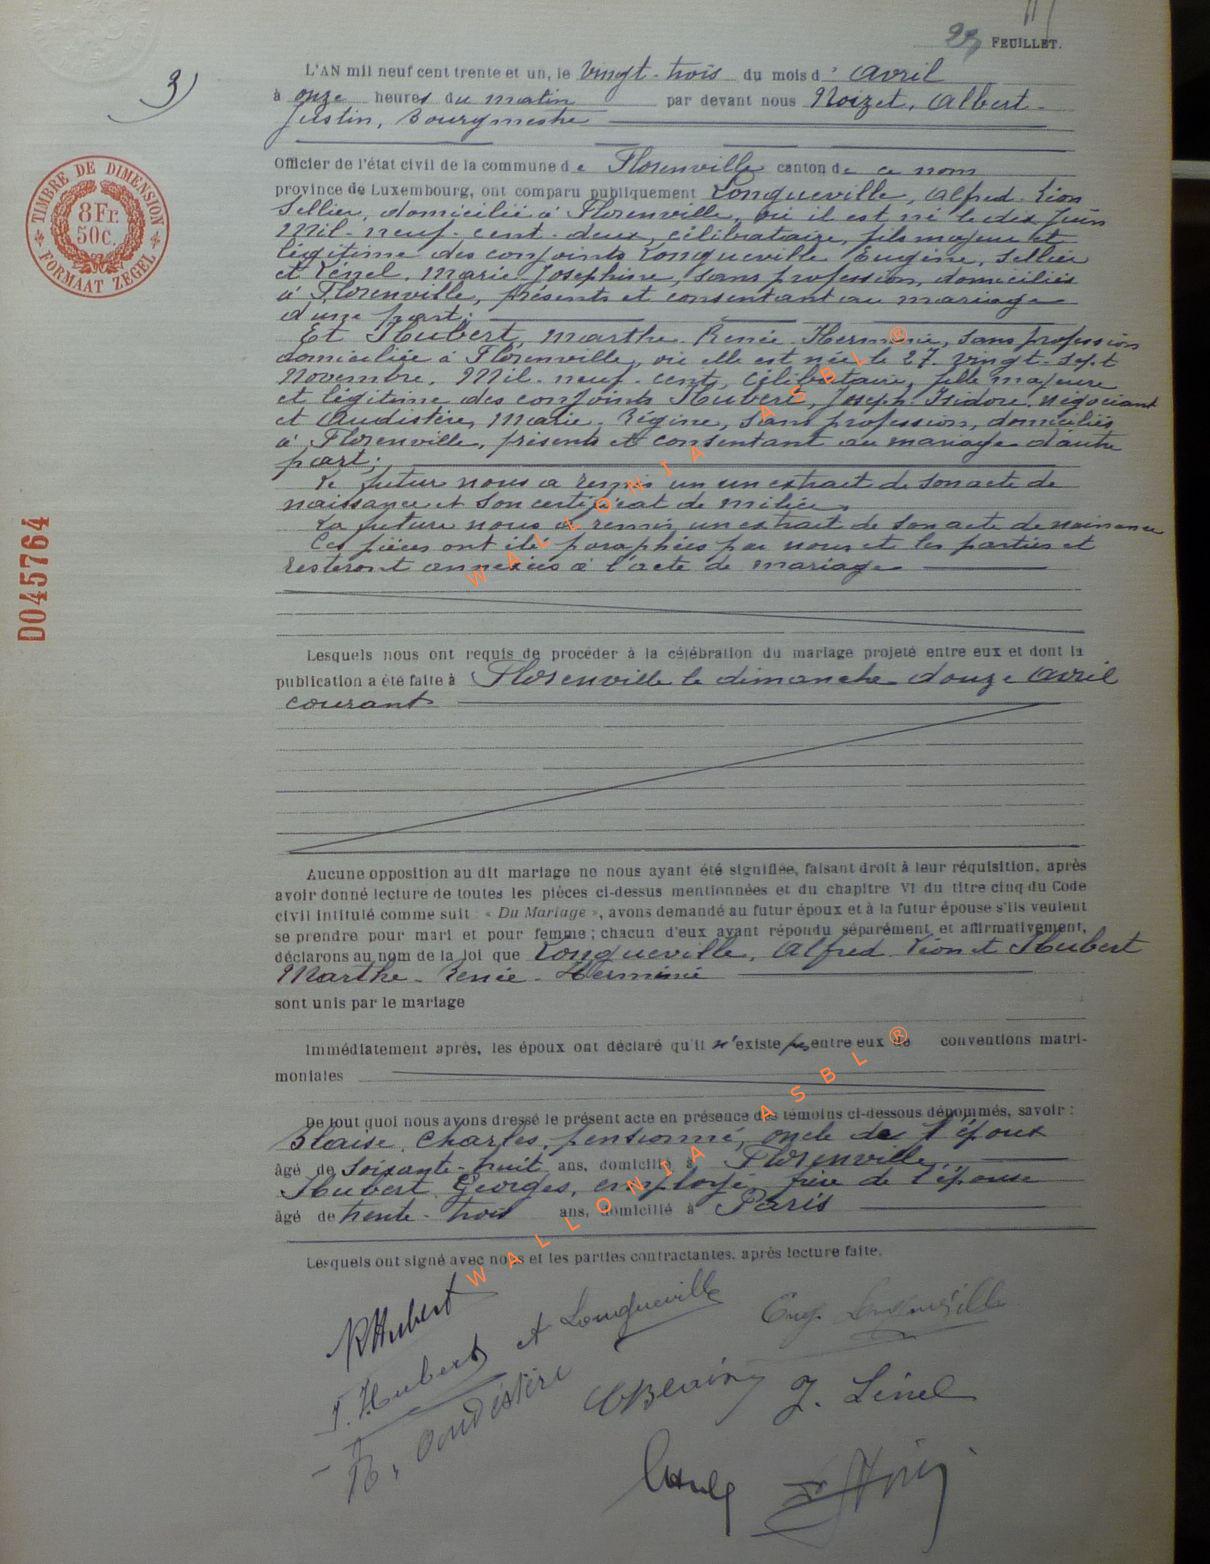 FEUILLET.
3)
L'AN mil neuf cent trente et un, le vingt-trois du mois d' avril
à onze heures du matin par devant nous Noizet, Albert-
Justin, Bourgmestre
Officier de l'état civil de la commune de Florenville canton de ce nom
province de Luxembourg, ont comparu publiquement Longueville, Alfred-Léon
Sellier, domicilié à Florenville, où il est né le dix Juin
Mil-neuf-cent-deux, célibataire, fils majeur et
légitime des conjoints Longueville Eugène, Sellier
et Lénel, Marie Josephine, sans profession, domiciliés
à Florenville, présents et consentant au mariage
d'une part;
Et Hubert, Marthe-Renée-Herminie, sans profession
domiciliée à Florenville, où elle est née le 27 vingt-sept
Novembre. Mil-neuf-cent, célibataire, fille majeure
et légitime des conjoints Hubert, Joseph-Isidore, négociant
et Caudistère, Marie-Régine, sans profession, domiciliés
à Florenville, présents et consentant au mariage d'autre
part;
Le futur nous a remis un un extrait de son acte de
naissance et son certificat de milice.
La future nous a remis un extrait de son acte de naissance
Ces pièces ont été paraphées par nous et les parties et
resteront annexées à l'acte de mariage
TIMBRE DE DIMENSION
8Fr.
50c.
FORMAAT ZEGEL
D045764
Lesquels nous ont requis de procéder à la célébration du mariage projeté entre eux et dont la
publication a été faite à Florenville le dimanche douze avril
courant
Aucune opposition au dit mariage ne nous ayant été signifiée, faisant droit à leur réquisition, après
avoir donné lecture de toutes les pièces ci-dessus mentionnées et du chapitre VI du titre cinq du Code
civil intitulé comme suit : « Du Mariage », avons demandé au futur époux et à la futur épouse s'ils veulent
se prendre pour mari et pour femme ; chacun d'eux ayant répondu séparément et affirmativement,
déclarons au nom de la loi que Longueville, Alfred-Léon et Hubert
Marthe-Renée-Herminie
sont unis par le mariage
Immédiatement après, les époux ont déclaré qu'il n'existe pas entre eux de conventions matri-
moniales
De tout quoi nous avons dressé le présent acte en présence des témoins ci-dessous dénommés, savoir :
Blaise, Charles, pensionné, oncle de l'époux
âgé de soixante-huit ans, domicilié à Florenville,
Hubert Georges, employé, frère de l'épouse
âgé de trente-trois ans, domicilié à Paris
Lesquels ont signé avec nous et les parties contractantes, après lecture faite.
Hubert
A Longueville
Eug. Longueville
J. Hubert
R. Caudistère
J. Lénel
WALLONIA ASBL ®
WALLONIA ASBL ®